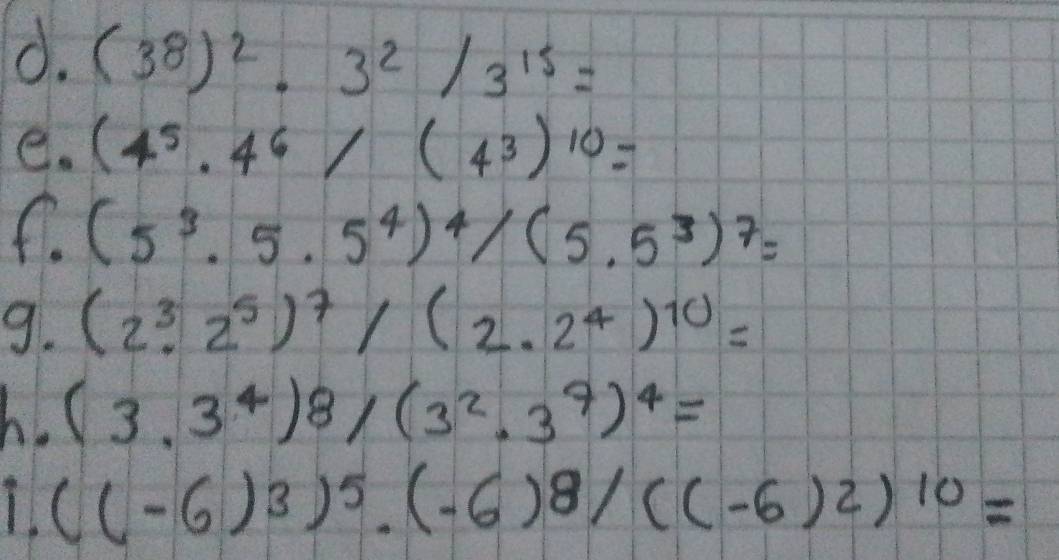 d. (38)² . 3² / 3¹⁵ =
e. (4⁵ . 4⁶ / (4³)¹⁰ =
f. (5³ . 5 . 5⁴)⁴ / (5 . 5³)⁷ =
g. (2³ . 2⁵)⁷ / (2 . 2⁴)¹⁰ =
h. (3 . 3⁴)⁸ / (3² . 3⁷)⁴ =
i. ((-6)³)⁵ . (-6)⁸ / ((-6)²)¹⁰ =